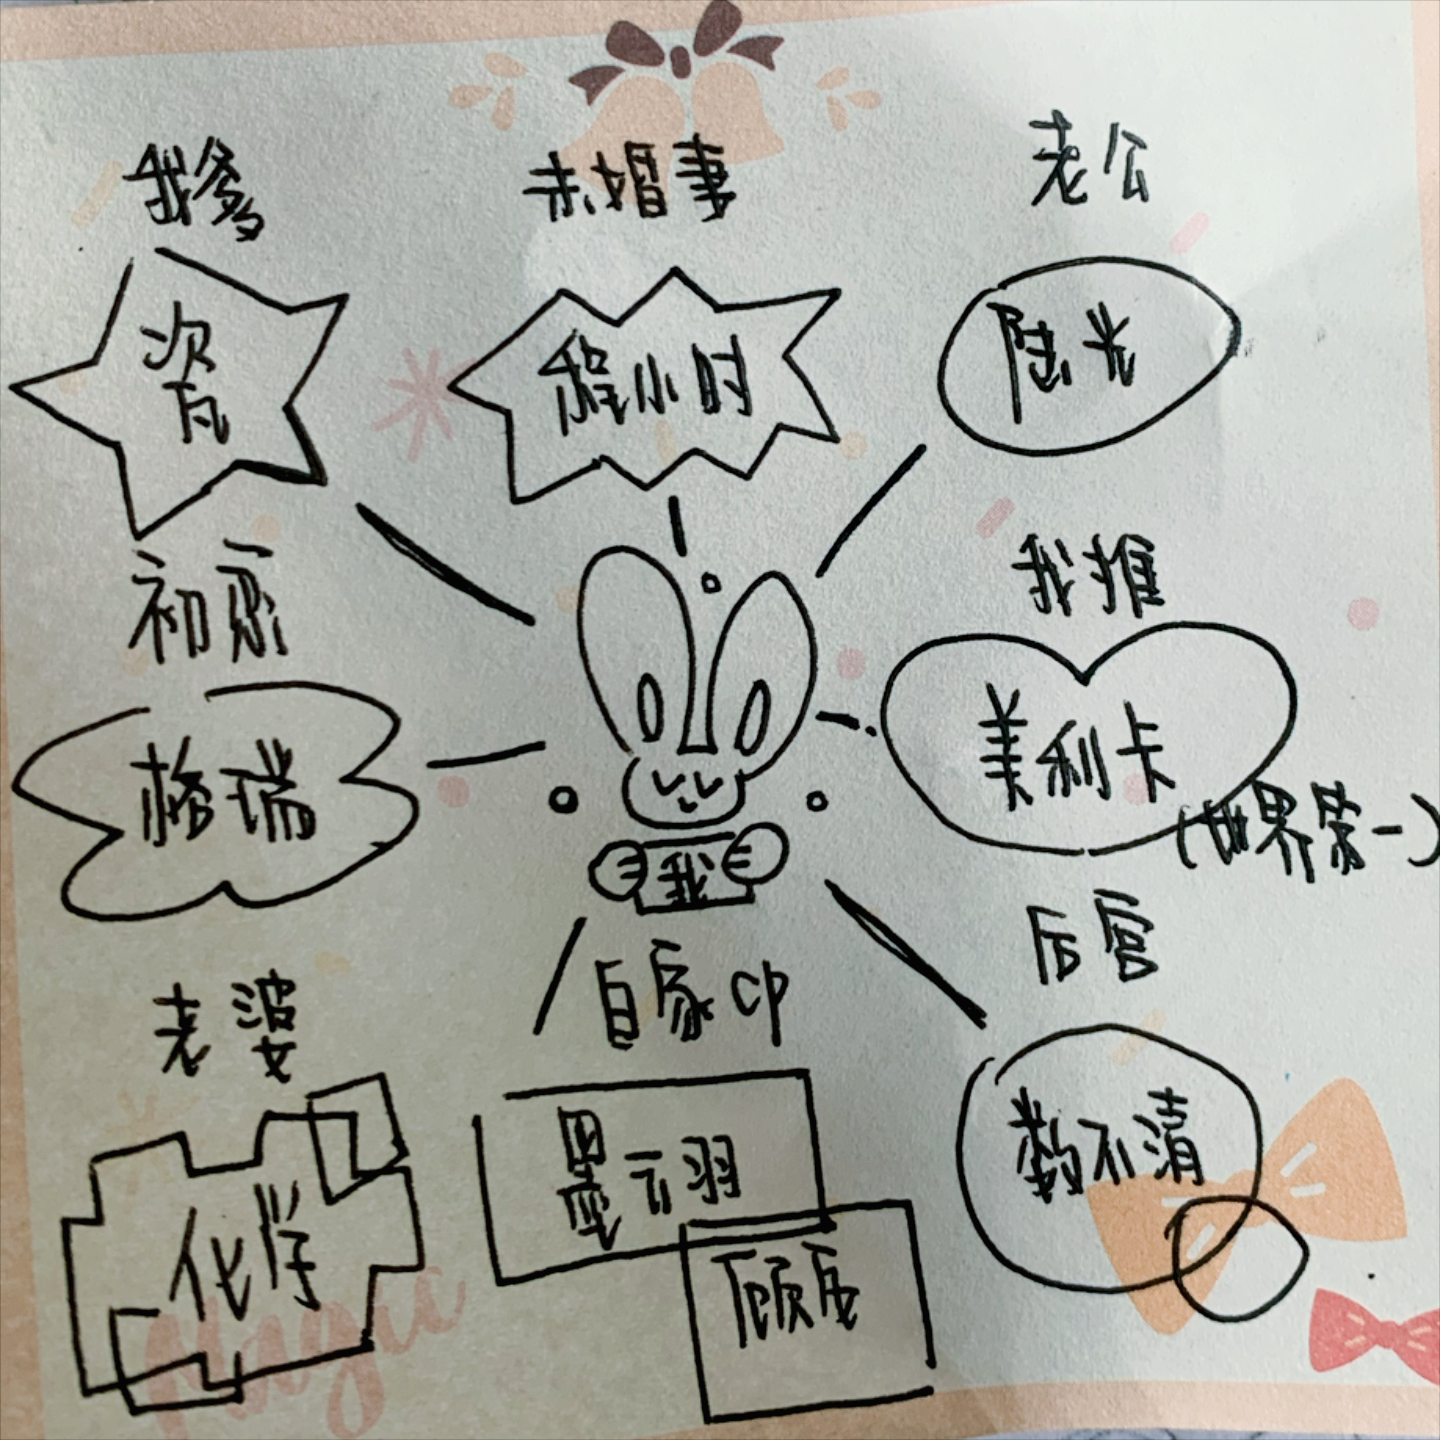 我爹
未婚妻
老公
瓷
程小时
陆光
初恋
我推
格瑞
美利卡
(世界第一)
我
后宫
老婆
自家cp
化学
墨云羽
数不清
顾辰
Magic